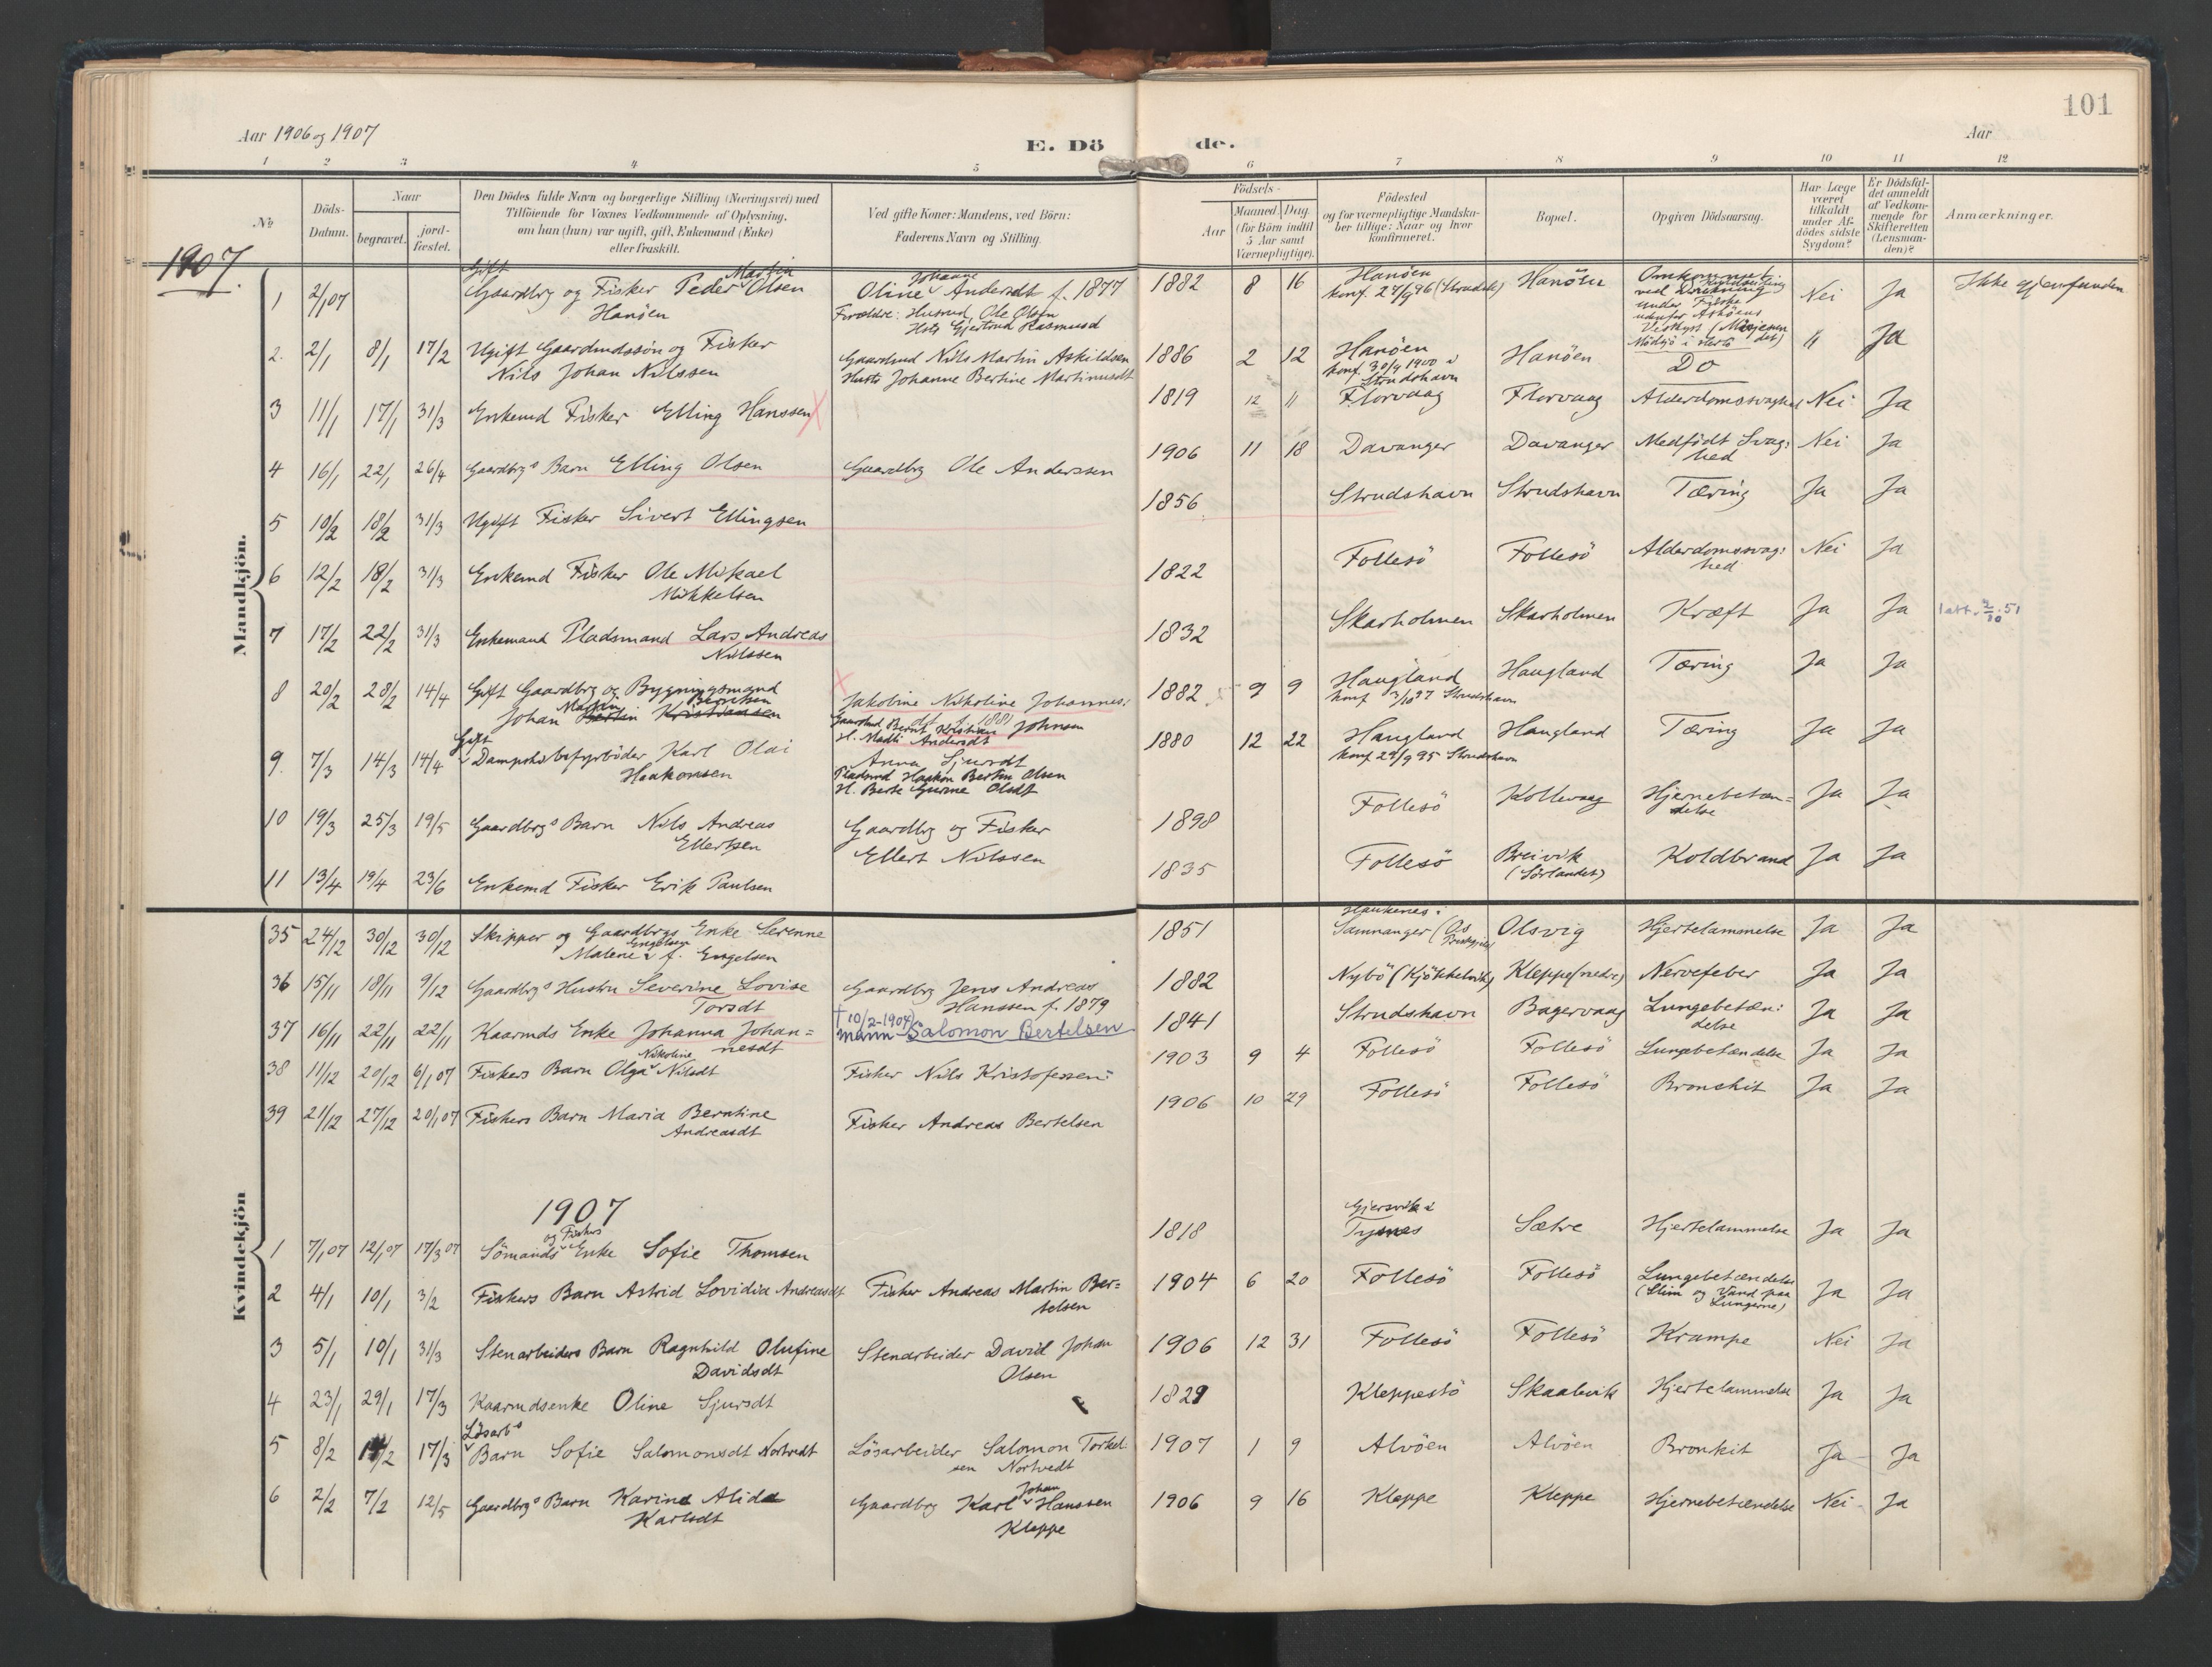 101
Aar 1906 og 1907
E. Dö de.
Aar
1 2 3 4 5 6 7 8 9 10 11 12
No
Döds-Datum.
Naar
begravet.
jord-fæstet.
Den Dödes fulde Navn og borgerlige Stilling (Næringsvei) med
Tilföiende for Voxnes Vedkommende af Oplysning,
om han (hun) var ugift, gift, Enkemand (Enke)
eller fraskilt.
Ved gifte Koner: Mandens, ved Börn:
Faderens Navn og Stilling.
Födsels-
Aar
Maaned. Dag.
(for Börn indtil
5 Aar samt
Værnepligtige).
Födested
og for værnepligtige Mandska-
ber tillige: Naar og hvor
konfirmeret.
Bopæl.
Opgiven Dödsaarsag.
Har Læge
været
tilkaldt
under Af-
dödes sidste
Sygdom?
Er Dödsfal-
det anmeldt
af Vedkom-
mende for
Skifteretten
(Lensman-
den)?
Anmærkninger.
1907.
Mandkjön.
1 2/1 07 Gift Gaardbrg og Fisker Peder Martin Olsen
Hanöen
Oline Johanne Andersdt f. 1877
Forældre: Husmd. Ole Olsen
Hst. Gjertrud Rasmusd
1882 8 16 Hanöen
konf. 27/9 96 (Strudsh)
Hanöen
Omkommet
ved Drukning
under Fiske
udenfor Asköens
Vestkyst
Nei Ja Ikke gjenfunden
2. 2/1 8/1 17/2 Ugift Gaardmdssön og Fisker
Nils Johan Nilssen
Gaardmd Nils Martin Askildsen
Hustr Johanne Bertine Martinusdt
1886 2 12 Hanöen
konf. 30/9 1900 i
Strudshavn
Hanöen Do " Ja
3 11/1 17/1 31/3 Enkemd Fisker Elling Hanssen X
1819 12 11 Florvaag Florvaag Alderdomssvaghed Nei Ja
4 16/1 22/1 26/4 Gaardbrgs Barn Elling Olsen Gaardbrg Ole Anderssen
1906 11 18 Davanger Davanger Medfödt Svag:
hed Nei Ja
5 10/2 18/2 31/3 Ugift Fisker Sivert Ellingsen
1856 Strudshavn Strudshavn Tæring Ja Ja
6 12/2 18/2 31/3 Enkemd Fisker Ole Mikael
Mikkelsen
1822 Follesö Follesö Alderdomssvag:
hed Nei Ja
7 17/2 22/2 31/3 Enkemand Pladsmand Lars Andreas
Nilssen
1832 Skarholmen Skarholmen Kræft Ja Ja att. 2/10.51
8 20/2 28/2 14/4 Gift Gaardbrg og Bygningsmand
Johan Martin Berntsen Kristiansen
X Jakobine Nikoline Johannes:
dt f. 1881
Gaardmd Bernt Kristian Johnsen
H. Madli Andersdt
1882 9 9 Haugland
konf 3/10 97 Strudshavn
Haugland Tæring Ja Ja
9. 7/3 14/3 14/4 Gift Dampskibsfyrböder Karl Olai
Haakonsen
Anna Sjursdt
Pladsmd Haakon Bertin Olsen
H. Berte Gurine Olsdt
1880 12 22 Haugland
konf 29/9 95 Strudshavn
Haugland Tæring Ja Ja
10 19/3 25/3 19/5 Gaardbrgs Barn Nils Andreas
Ellertsen
Gaardbrg og Fisker
Ellert Nilssen
1898 Follesö Kollevaag Hjernebetæn=
delse Ja Ja
11 13/4 19/4 23/6 Enkemd Fisker Erik Paulsen
1835 Follesö Breivik
(Sörlandet) Koldbrand Ja Ja
Kvindekjön
35 24/12 30/12 30/12 Skipper og Gaardbrgs Enke Serenne
Malene Engelsen f. Engelsen
1851 Haukenes i
Samnanger (Os
Olsvig Hjertelammelse Ja Ja
36 15/11 18/11 9/12 Gaardbrgs Hustru Severine Lovise
Torsdt
Gaardbrg Jens Andreas
Hanssen f. 1879
1882 Nybö (Kjökkelvik) Kleppe (nedre) Nervefeber Ja Ja
37 16/11 22/11 22/11 Kaarmds Enke Johanna Johan=
nesdt
† 10/2-1904)
mann Salomon Bertelsen
1841 Strudshavn Bagervaag Lungebetæn:
delse Ja Ja
38 11/12 20/12 6/1 07 Fiskers Barn Olga Nikoline Nilsdt
Fisker Nils Kristofessen
1903 9 4 Follesö Follesö Lungebetændelse Ja Ja
39 21/12 27/12 20/1 07 Fiskers Barn Maria Berntine
Andreasdt
Fisker Andreas Bertelsen
1906 10 29 Follesö Follesö Bronchit Ja Ja
1907
1 7/1 07 12/1 07 17/3 07 Sömands og Fiskers Enke Sofie Thomsen
1818 Gjersvik i
Tysnes Sætre Hjertelammelse Ja Ja
2 4/1 10/1 3/2 Fiskers Barn Astrid Lovidia Andreasdt
Fisker Andreas Martin Ber=
telsen
1904 6 20 Follesö Follesö Lungebetændelse
(Slim og Vand paa
Lungerne) Ja Ja
3 5/1 10/1 31/3 Stenarbeiders Barn Ragnhild Olufine
Davidsdt
Stenarbeider David Johan
Olsen
1906 12 31 Follesö Follesö Krampe Nei Ja
4 23/1 29/1 17/3 Kaarmdsenke Oline Sjursdt
1829 Kleppestö Skaalevik Hjertelammelse Ja Ja
5 8/2 14/2 17/3 Lösarbs Barn Sofie Salomonsdt Nortvedt
Lösarbeider Salomon Torkel:
sen Nortvedt
1907 1 9 Alvöen Alvöen Bronkit Ja Ja
6 2/2 7/2 12/5 Gaardbrgs Barn Karine Alida
Karlsdt
Gaardbrg Karl Johan Hanssen
Kleppe
1906 9 16 Kleppe Kleppe Hjernebetændelse Nei Ja